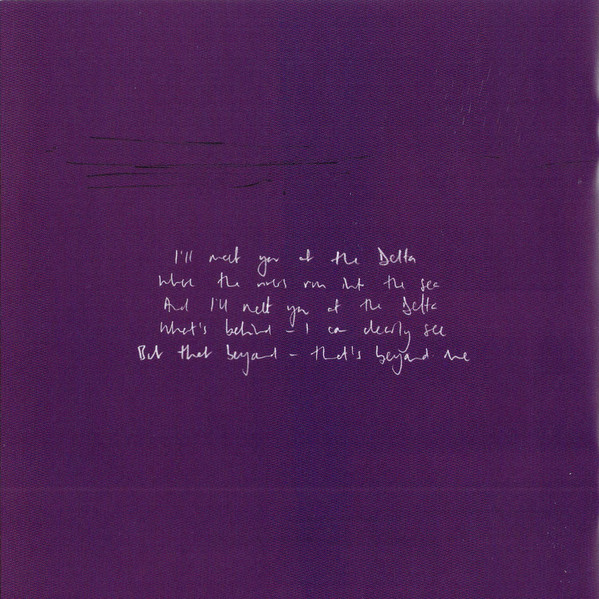 I'll meet you at the Delta
Where the rivers run into the sea
And I'll meet you at the Delta
What's behind - I can clearly see
But that beyond - that's beyond me